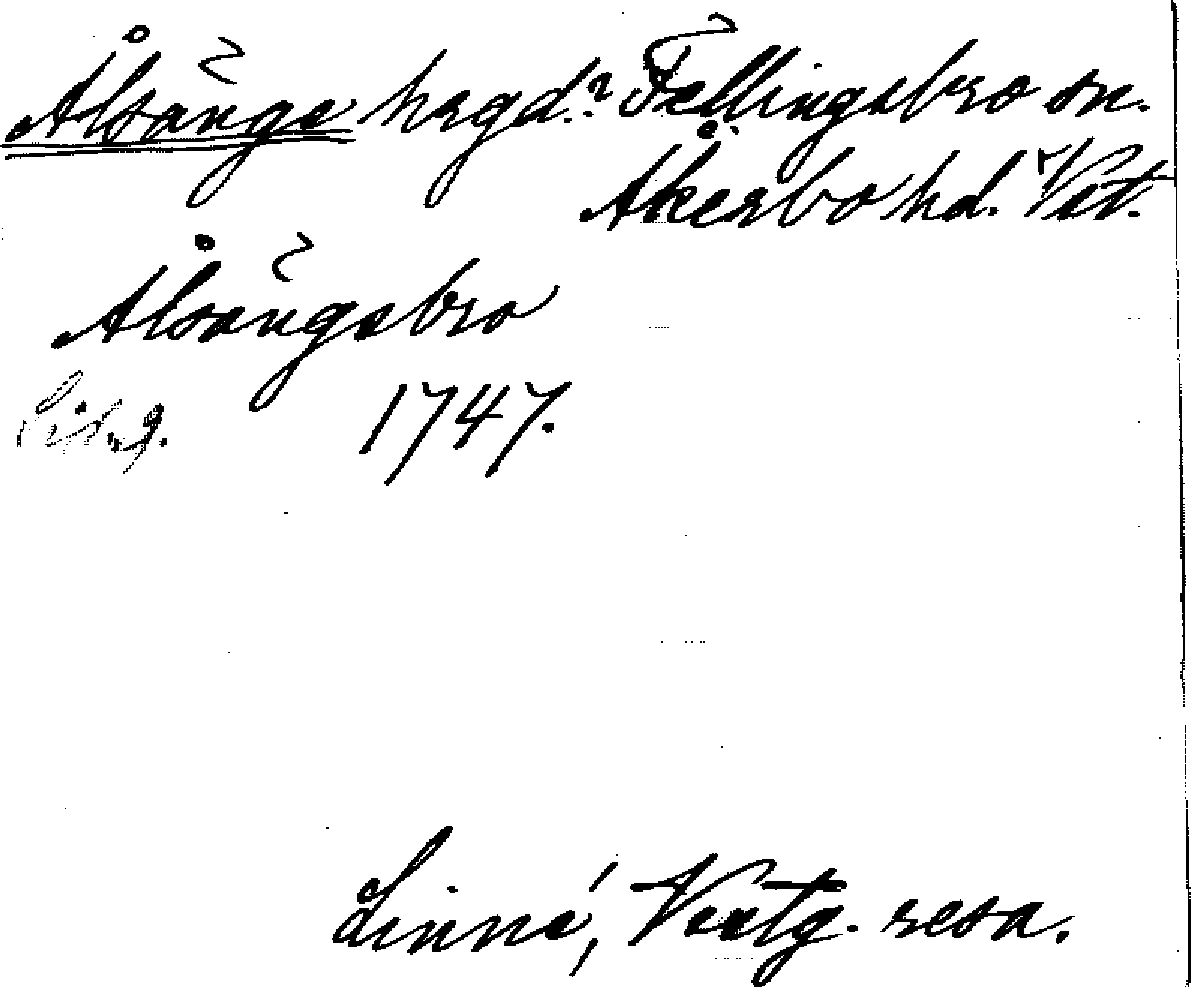 Ålsänge hrgd.? Fellingsbro sn.
Åkerbo hd. Vstm.
Ålsängsbro
1747.
Linné, Västg. resa.